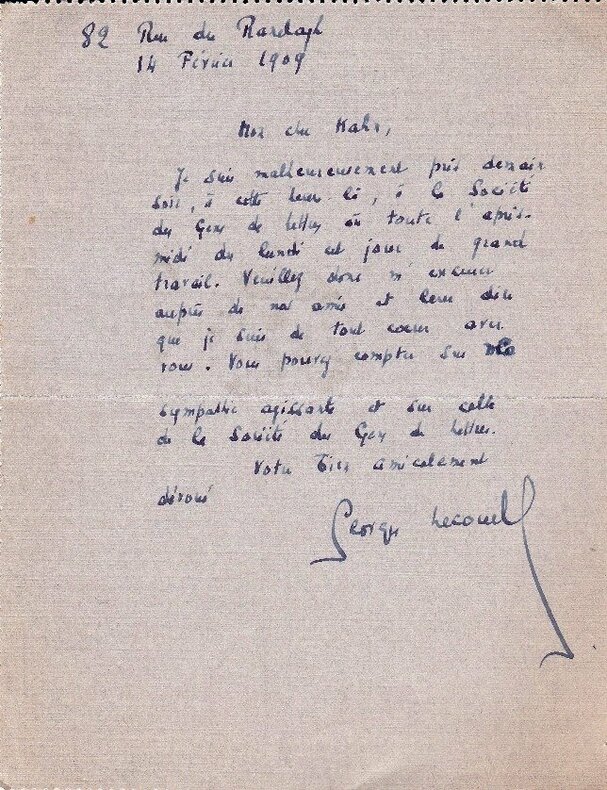 82 Rue du Ranelagh
14 Février 1909
Mon cher Kahn,
Je suis malheureusement pris demain
soir, à cette heure là, à la Société
des Gens de lettres où toute l'après-
midi du lundi est jour de grand
travail. Veuillez donc m'excuser
auprès de nos amis et leur dire
que je suis de tout coeur avec
vous. Vous pouvez compter sur ma
sympathie agissante et sur celle
de la Société des Gens de lettres.
Votre bien amicalement
dévoué
Georges Lecomte